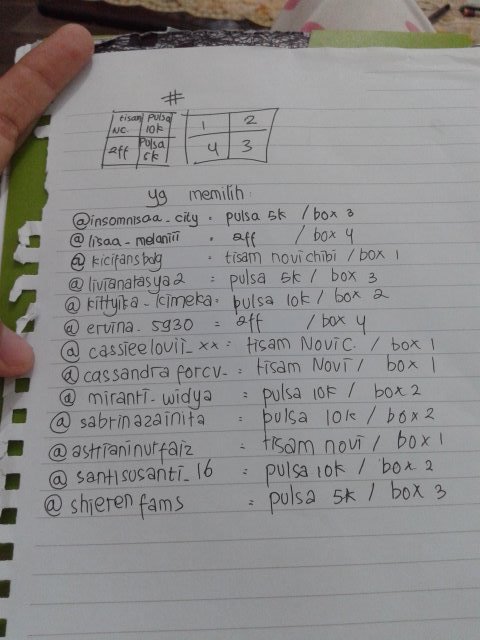 #
tisam NC. pulsa 10k 1 2
aff pulsa 5k 4 3
yg memilih :
@insomnisaa_city = pulsa 5k / box 3
@lisaa_melaniii = aff / box 4
@kicifansbdg = tisam novichibi / box 1
@livianatasya2 = pulsa 5k / box 3
@kittyika_kimeka = pulsa 10k / box 2
@ervina_5930 = aff / box 4
@cassieelovii_xx = tisam Novi C. / box 1
@cassandraforcv_ = tisam Novi / box 1
@miranti_widya = pulsa 10k / box 2
@sabrinazainita = pulsa 10k / box 2
@astrianinurfaiz = tisam novi / box 1
@santisusanti_16 = pulsa 10k / box 2
@shierenfams = pulsa 5k / box 3